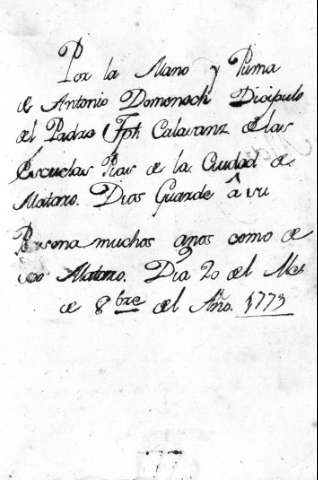 Por la Mano y Pluma
de Antonio Domenech Dicipulo
del Padre Calasanz de las
Escuelas Pias de la Ciudad de
Mataro. Dios Guarde â su
Persona muchos años como de
Mataro. Dia 20 del Mes
de 8bre del Año. 1773